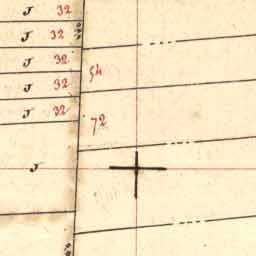 J 32
J 32
J 32
54
J 32
J 32
72
J